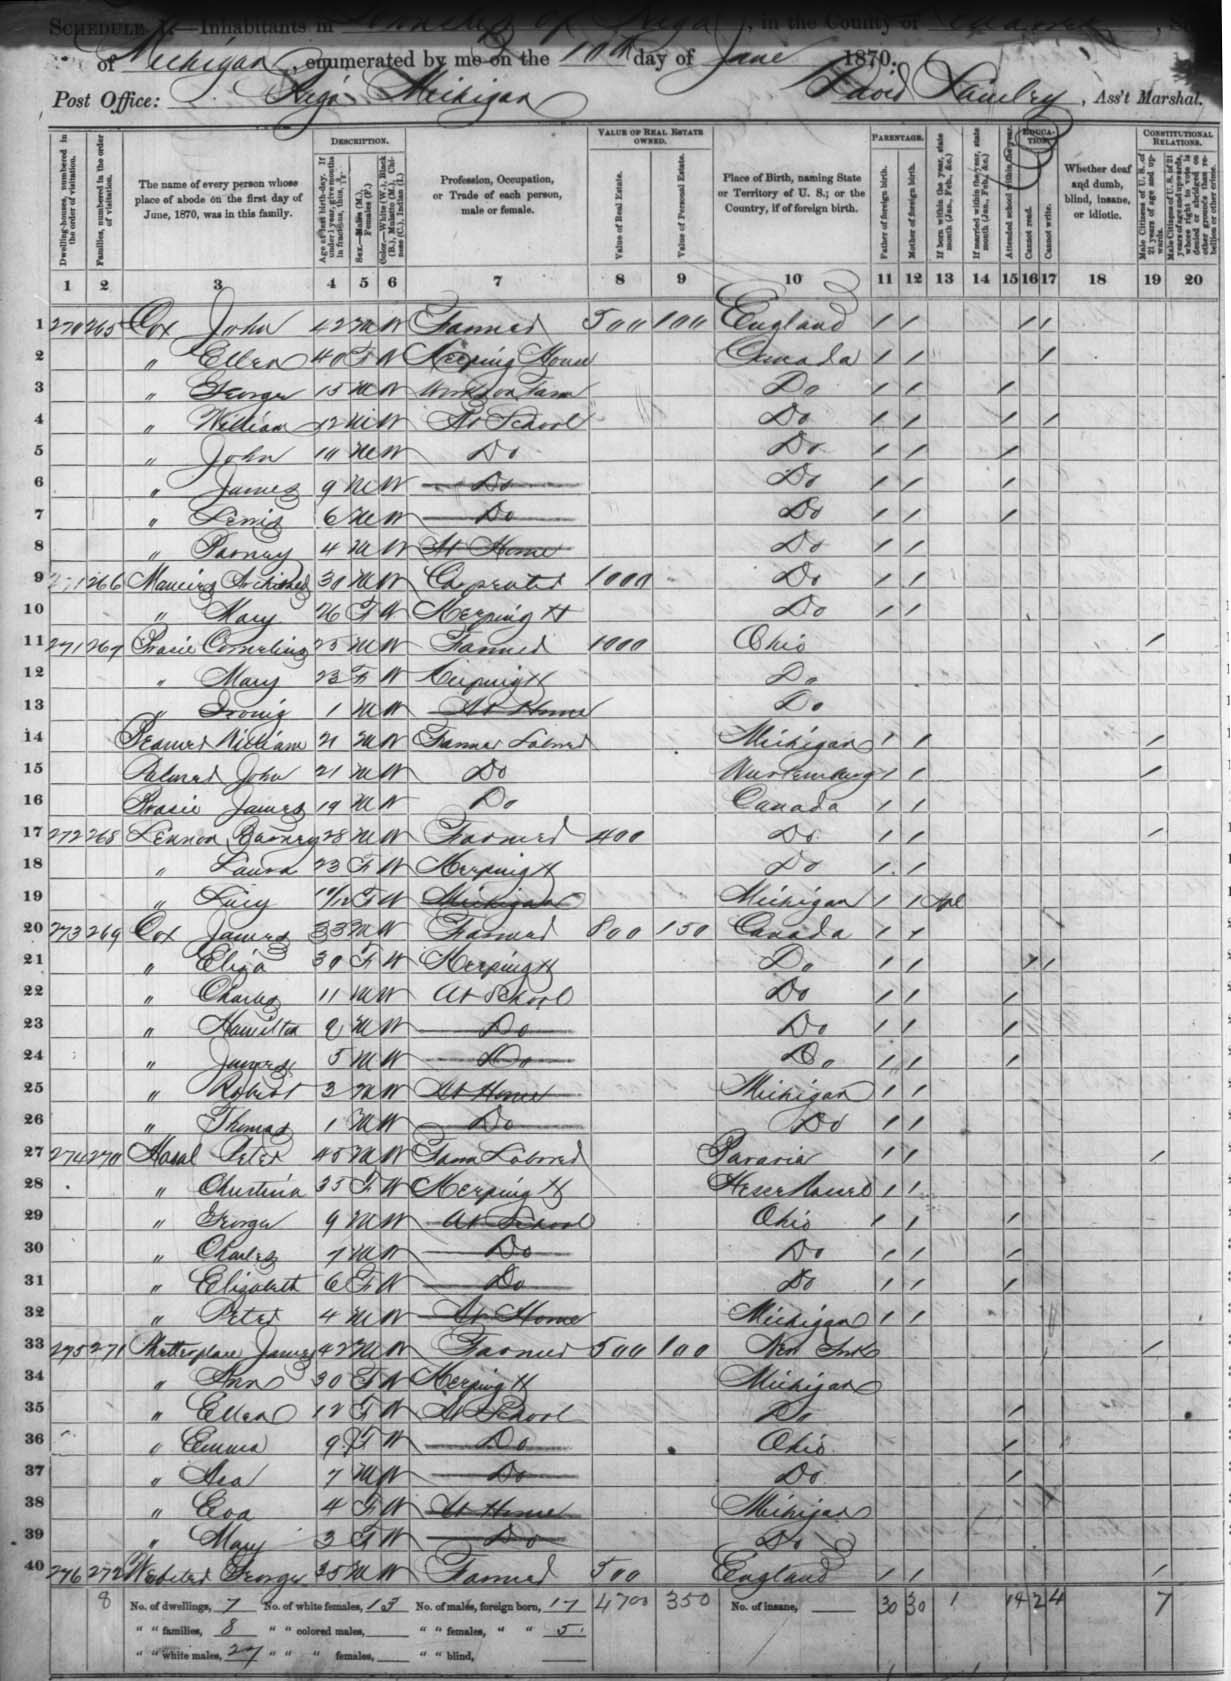 SCHEDULE 1.—Inhabitants in Township of Riga, in the County of
of Michigan, enumerated by me on the 10th day of June, 1870.
Post Office: Riga Michigan David, Ass't Marshal.
Dwelling-houses, numbered in the order of visitation.
Families, numbered in the order of visitation.
The name of every person whose place of abode on the first day of June, 1870, was in this family.
DESCRIPTION.
Age at last birth-day. If under 1 year, give months in fractions, thus,
Sex.—Males (M.), Females (F.)
Color.—White (W.), Black (B.), Mulatto (M.), Chinese (C.), Indian (I.)
Profession, Occupation, or Trade of each person, male or female.
VALUE OF REAL ESTATE OWNED.
Value of Real Estate.
Value of Personal Estate.
Place of Birth, naming State or Territory of U. S.; or the Country, if of foreign birth.
PARENTAGE.
Father of foreign birth.
Mother of foreign birth.
If born within the year, state month (Jan., Feb., &c.)
If married within the year, state month (Jan., Feb., &c.)
EDUCATION.
Attended school within the year.
Cannot read.
Cannot write.
Whether deaf and dumb, blind, insane, or idiotic.
CONSTITUTIONAL RELATIONS.
Male Citizens of U. S. of 21 years of age and upwards.
Male Citizens of U. S. of 21 years of age and upwards, whose right to vote is denied or abridged on other grounds than rebellion or other crime.
1 2 3 4 5 6 7 8 9 10 11 12 13 14 15 16 17 18 19 20
1 270 265 Cox John 42 M W Farmer 500 100 England / / / /
2 " Ellen 40 F W Keeping House Canada / / /
3 " George 15 M W Works on Farm Do / / /
4 " William 12 M W At School Do / / / /
5 " John 10 M W Do Do / / /
6 " James 9 M W Do Do / / /
7 " Lewis 6 M W Do Do / / /
8 " 4 M W At Home Do / /
9 271 266 30 M W Carpenter 1000 Do / /
10 " Mary 26 F W Keeping H Do / /
11 271 267 Cornelius 25 M W Farmer 1000 Ohio /
12 " Mary 23 F W Keeping H Do
13 " 1 M W At Home Do
14 William 21 M W Farmer Laborer Michigan / / /
15 Palmer John 21 M W Do Wurtemburg / / /
16 James 19 M W Do Canada / /
17 272 268 Lennon Barney 28 M W Farmer 400 Do / / /
18 " Laura 23 F W Keeping H Do / /
19 " Lucy 10/12 F W Michigan Michigan / /
20 273 269 Cox James 33 M W Farmer 800 150 Canada / /
21 " Eliza 30 F W Keeping H Do / / / /
22 " Charles 11 M W At School Do / / /
23 " Hamilton 9 M W Do Do / / /
24 " James 5 M W Do Do / / /
25 " Robert 3 M W At Home Michigan / /
26 " Thomas 1 M W Do Do / /
27 274 270 Peter 45 M W Farm Laborer Bavaria / / /
28 " Christina 35 F W Keeping H / /
29 " George 9 M W At School Ohio / / /
30 " Charles 7 M W Do Do / / /
31 " Elizabeth 6 F W Do Do / / /
32 " Peter 4 M W At Home Michigan / /
33 275 271 James 42 M W Farmer 500 100 New York /
34 " Ann 30 F W Keeping H Michigan
35 " Ellen 12 F W At School Do /
36 " Emma 9 F W Do Ohio /
37 " Asa 7 M W Do Do /
38 " Eva 4 F W At Home Michigan
39 " Mary 3 F W Do Do
40 276 272 Webster George 35 M W Farmer 500 England / / /
8 No. of dwellings, 7 No. of white females, 13 No. of males, foreign born, 17 4700 350 No. of insane, 30 30 1 14 2 4 7
" " families, 8 " " colored males, " " females, " " 5
" " white males, 27 " " " females, " " blind,